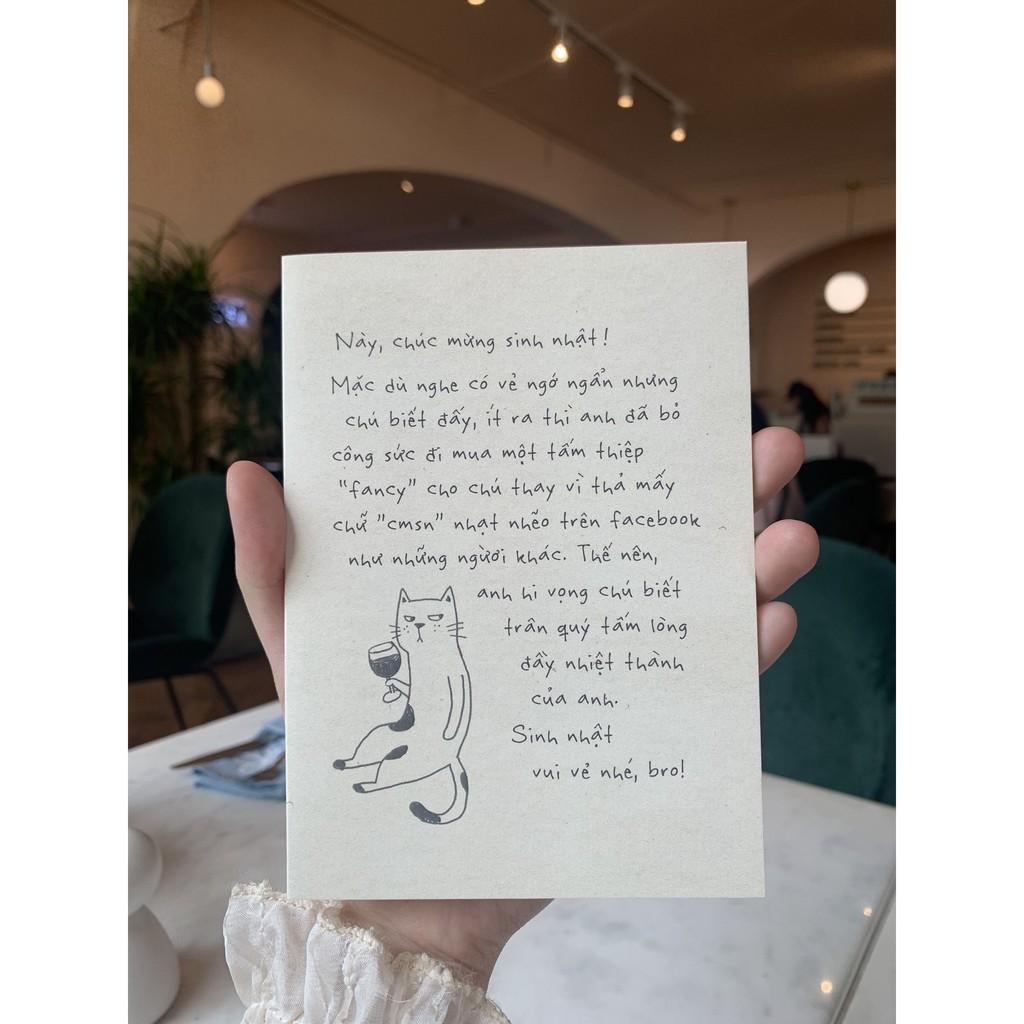 Này, chúc mừng sinh nhật!
Mặc dù nghe có vẻ ngớ ngẩn nhưng
chú biết đấy, ít ra thì anh đã bỏ
công sức đi mua một tấm thiệp
"fancy" cho chú thay vì thả mấy
chữ "cmsn" nhạt nhẽo trên facebook
như những người khác. Thế nên,
anh hi vọng chú biết
trân quý tấm lòng
đầy nhiệt thành
của anh.
Sinh nhật
vui vẻ nhé, bro!